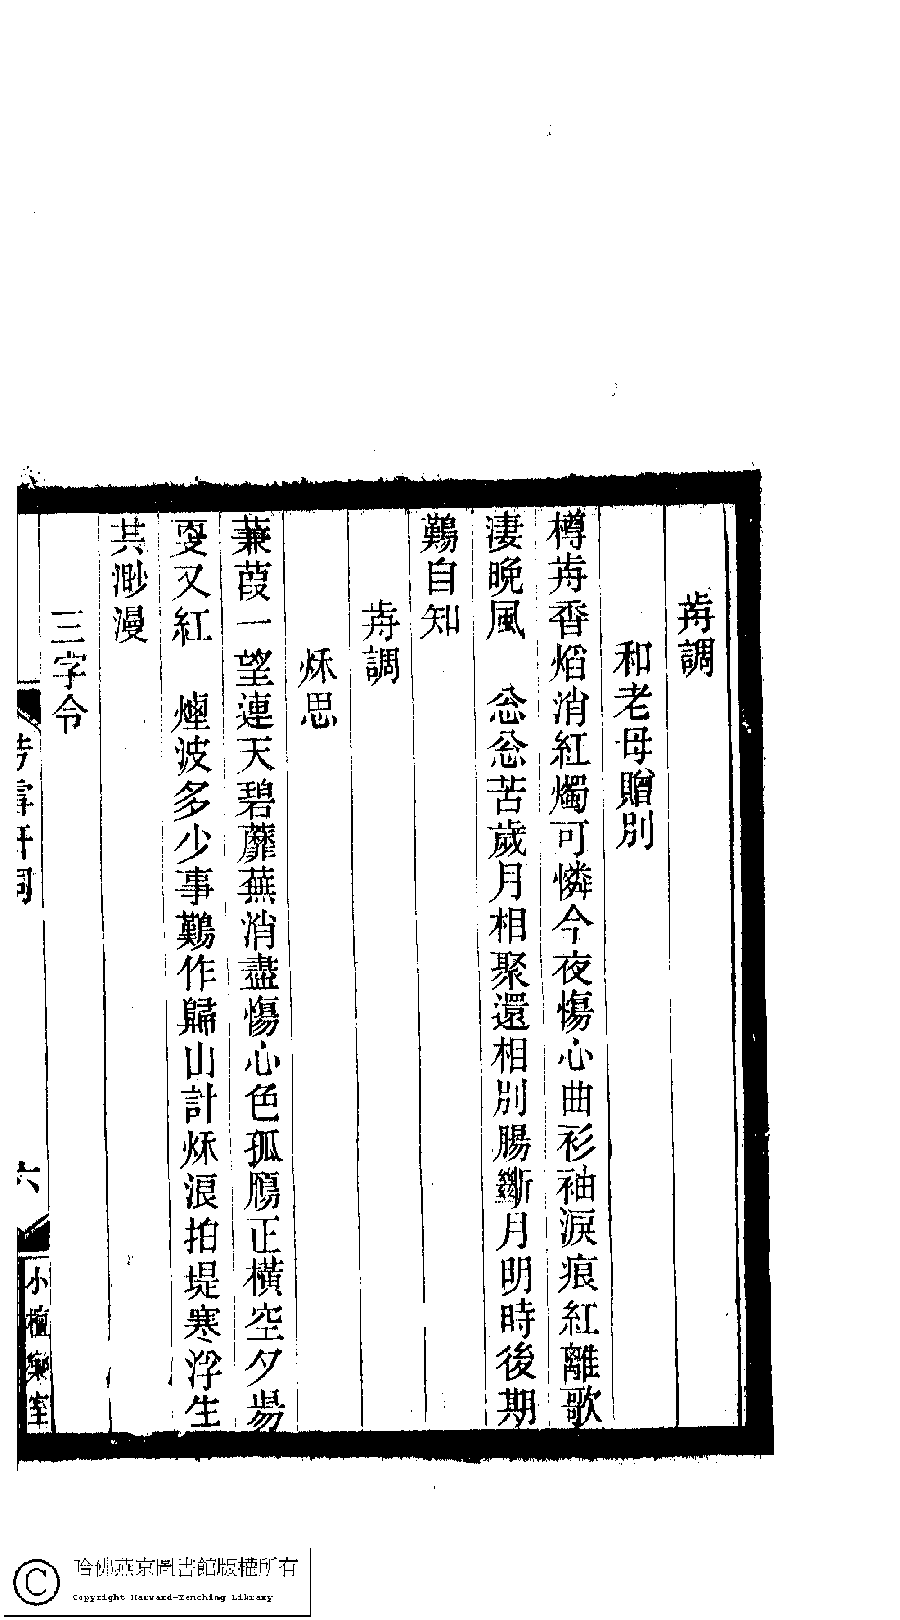 歬調
和老母贈別
樽歬香燄消紅燭可憐今夜傷心曲衫袖淚痕紅離歌
淒晚風　忩忩苦歲月相聚還相別腸斷月明時後期
鷄自知
歬調
秌思
蒹葭一望連天碧蘼蕪消盡傷心色孤鴈正橫空夕昜
叜又紅　煙波多少事鷄作歸山計秌浪拍堤寒浮生
共渺漫
三字令
六
小檀欒室
哈佛燕京圖書館版權所有
Copyright Harvard-Yenching Library